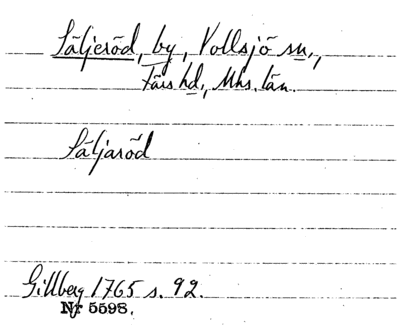 Säljeröd, by, Vollsjö sn.,
Färs hd., Mhs. län.
Säljaröd
Gillberg 1765 s. 92.
Nr 5598.